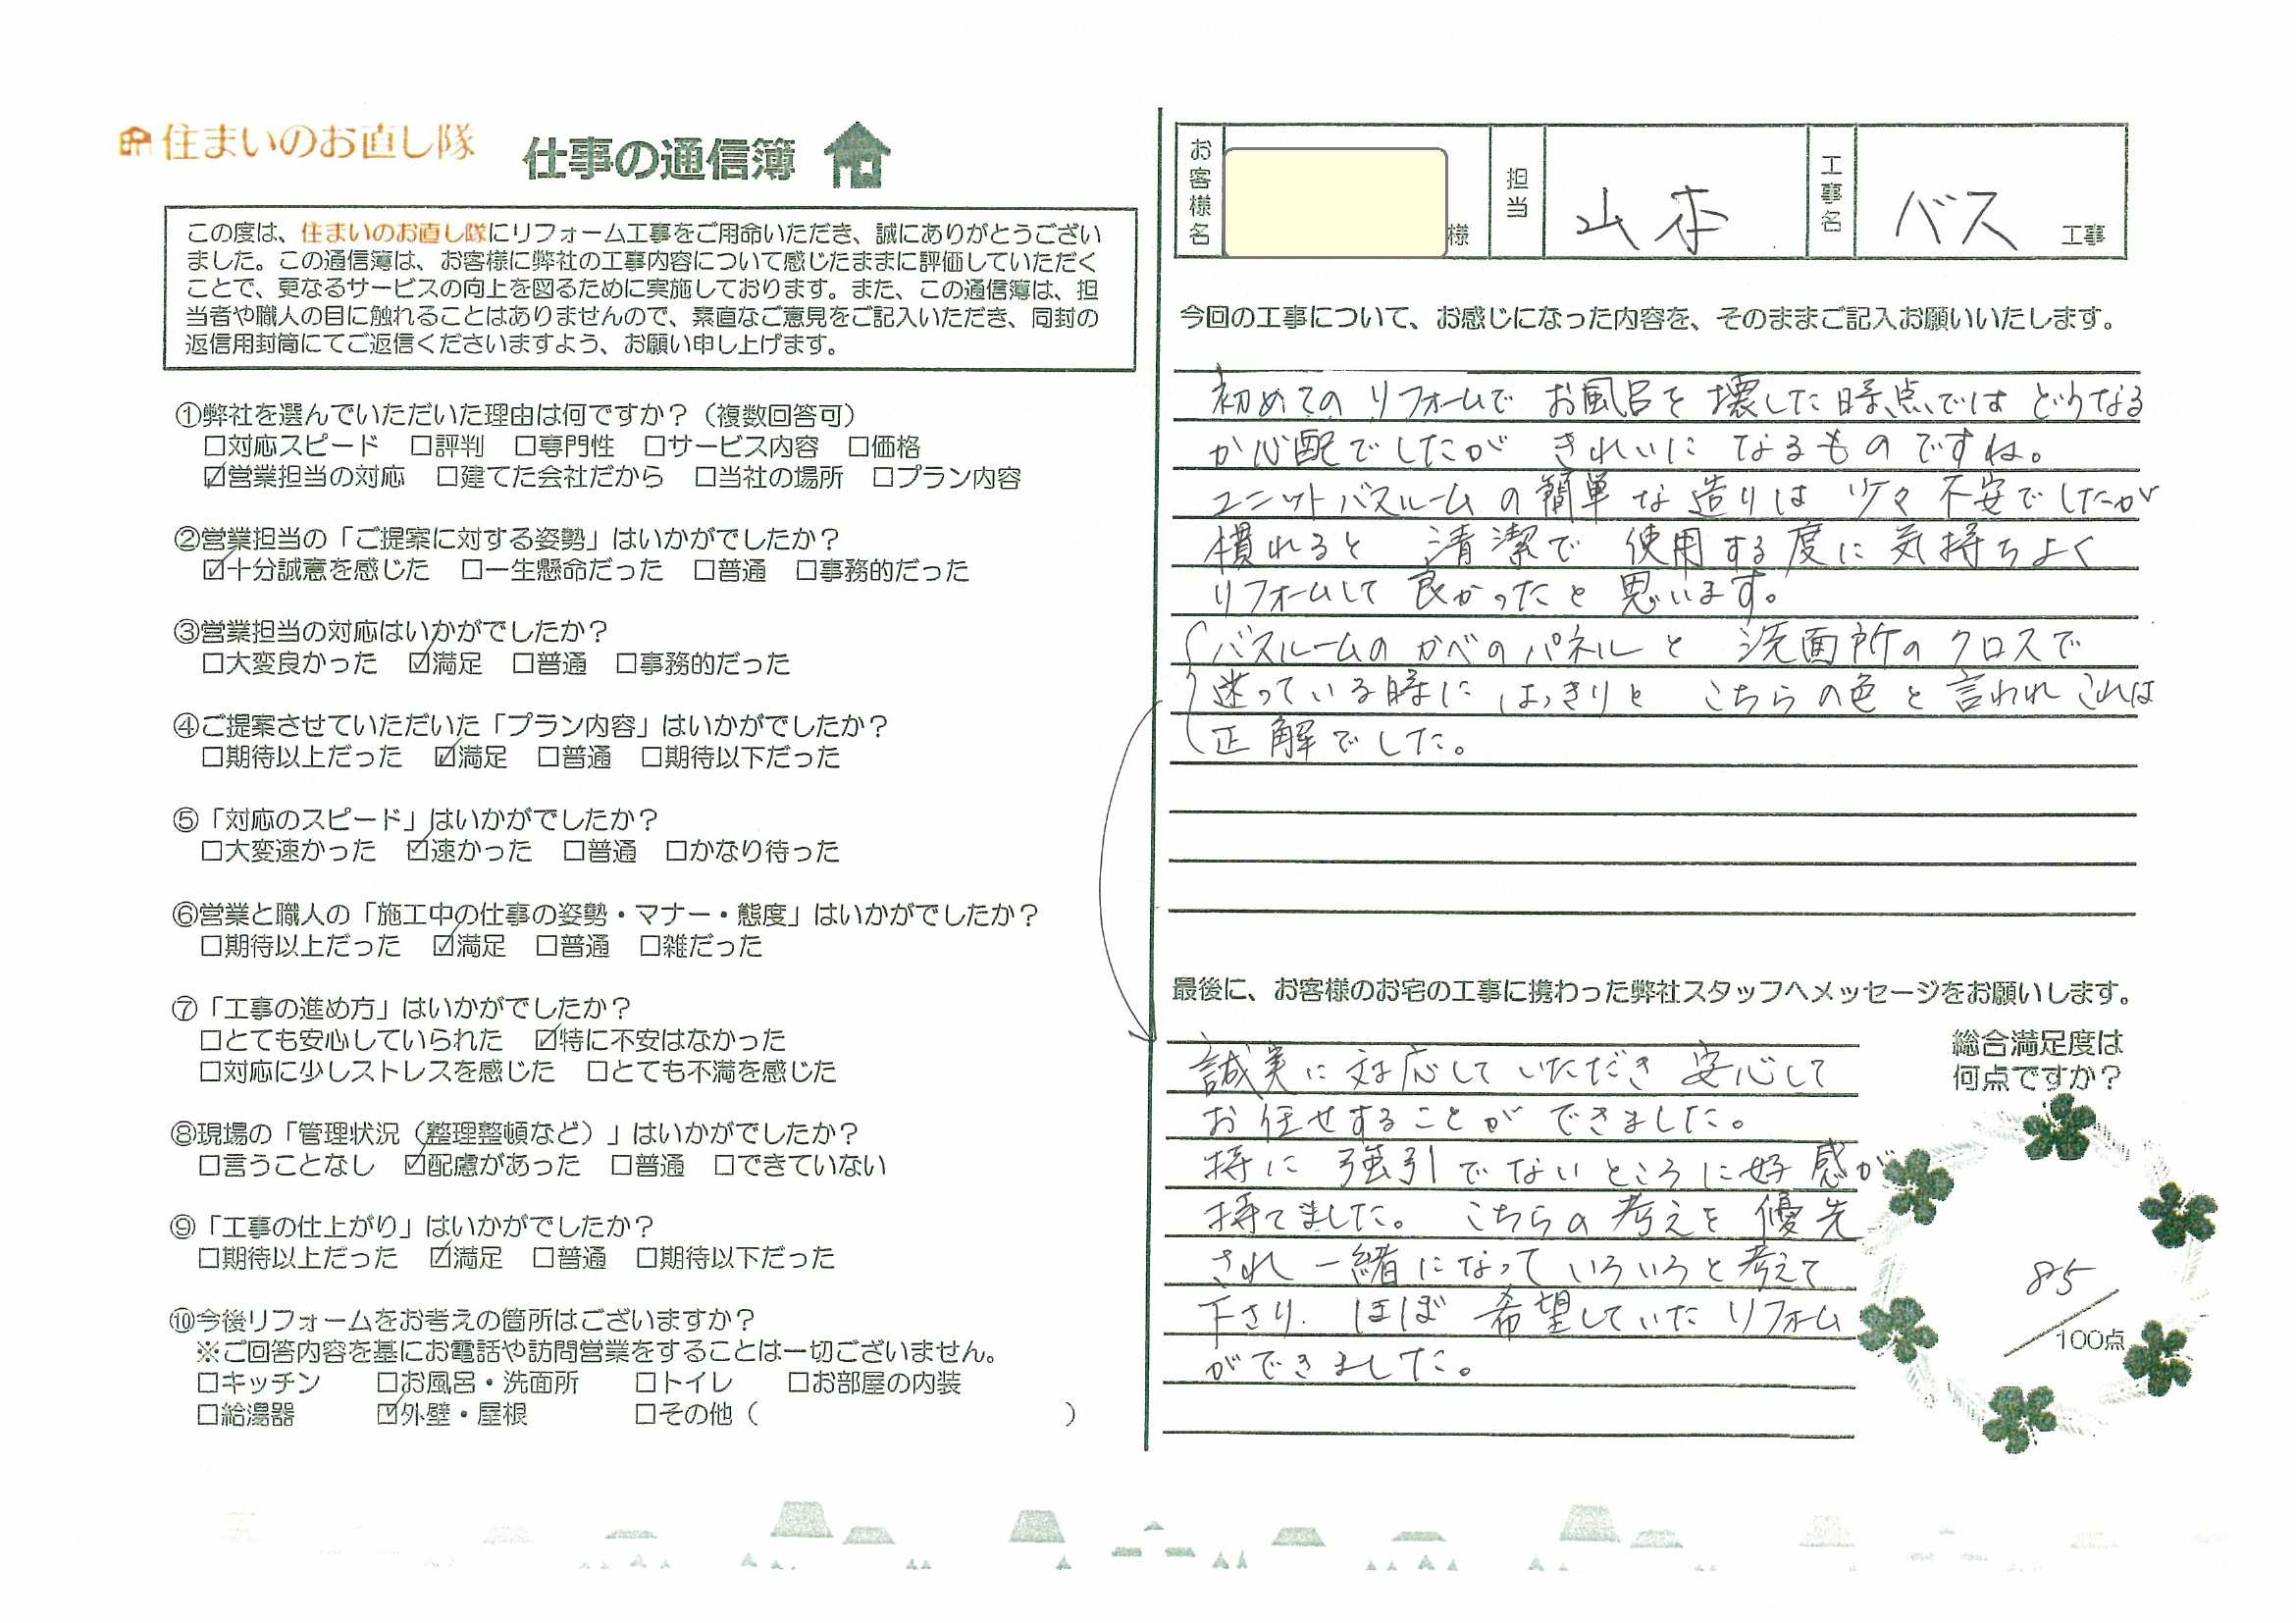 住まいのお直し隊 仕事の通信簿
この度は、住まいのお直し隊にリフォーム工事をご用命いただき、誠にありがとうござい
ました。この通信簿は、お客様に弊社の工事内容について感じたままに評価していただく
ことで、更なるサービスの向上を図るために実施しております。また、この通信簿は、担
当者や職人の目に触れることはありませんので、素直なご意見をご記入いただき、同封の
返信用封筒にてご返信くださいますよう、お願い申し上げます。
①弊社を選んでいただいた理由は何ですか？（複数回答可）
□対応スピード □評判 □専門性 □サービス内容 □価格
☑営業担当の対応 □建てた会社だから □当社の場所 □プラン内容
②営業担当の「ご提案に対する姿勢」はいかがでしたか？
☑十分誠意を感じた □一生懸命だった □普通 □事務的だった
③営業担当の対応はいかがでしたか？
□大変良かった ☑満足 □普通 □事務的だった
④ご提案させていただいた「プラン内容」はいかがでしたか？
□期待以上だった ☑満足 □普通 □期待以下だった
⑤「対応のスピード」はいかがでしたか？
□大変速かった ☑速かった □普通 □かなり待った
⑥営業と職人の「施工中の仕事の姿勢・マナー・態度」はいかがでしたか？
□期待以上だった ☑満足 □普通 □雑だった
⑦「工事の進め方」はいかがでしたか？
□とても安心していられた ☑特に不安はなかった
□対応に少しストレスを感じた □とても不満を感じた
⑧現場の「管理状況（整理整頓など）」はいかがでしたか？
□言うことなし ☑配慮があった □普通 □できていない
⑨「工事の仕上がり」はいかがでしたか？
□期待以上だった ☑満足 □普通 □期待以下だった
⑩今後リフォームをお考えの箇所はございますか？
※ご回答内容を基にお電話や訪問営業をすることは一切ございません。
□キッチン □お風呂・洗面所 □トイレ □お部屋の内装
□給湯器 ☑外壁・屋根 □その他（ ）
お客様名 様 担当 山本 工事名 バス 工事
今回の工事について、お感じになった内容を、そのままご記入お願いいたします。
初めてのリフォームで お風呂を壊した時点ではどうなる
か心配でしたが きれいになるものですね。
ユニットバスルームの簡単な造りは少々不安でしたが
慣れると 清潔で 使用する度に気持ちよく
リフォームして良かったと思います。
バスルームのかべのパネルと 洗面所のクロスで
迷っている時に はっきりと こちらの色と言われこれは
正解でした。
最後に、お客様のお宅の工事に携わった弊社スタッフへメッセージをお願いします。
誠実に対応していただき 安心して
お任せすることが できました。
特に強引でないところに好感が
持てました。 こちらの考えを優先
され一緒になっていろいろと考えて
下さり、ほぼ希望していたリフォーム
ができました。
総合満足度は
何点ですか？
85
／100点